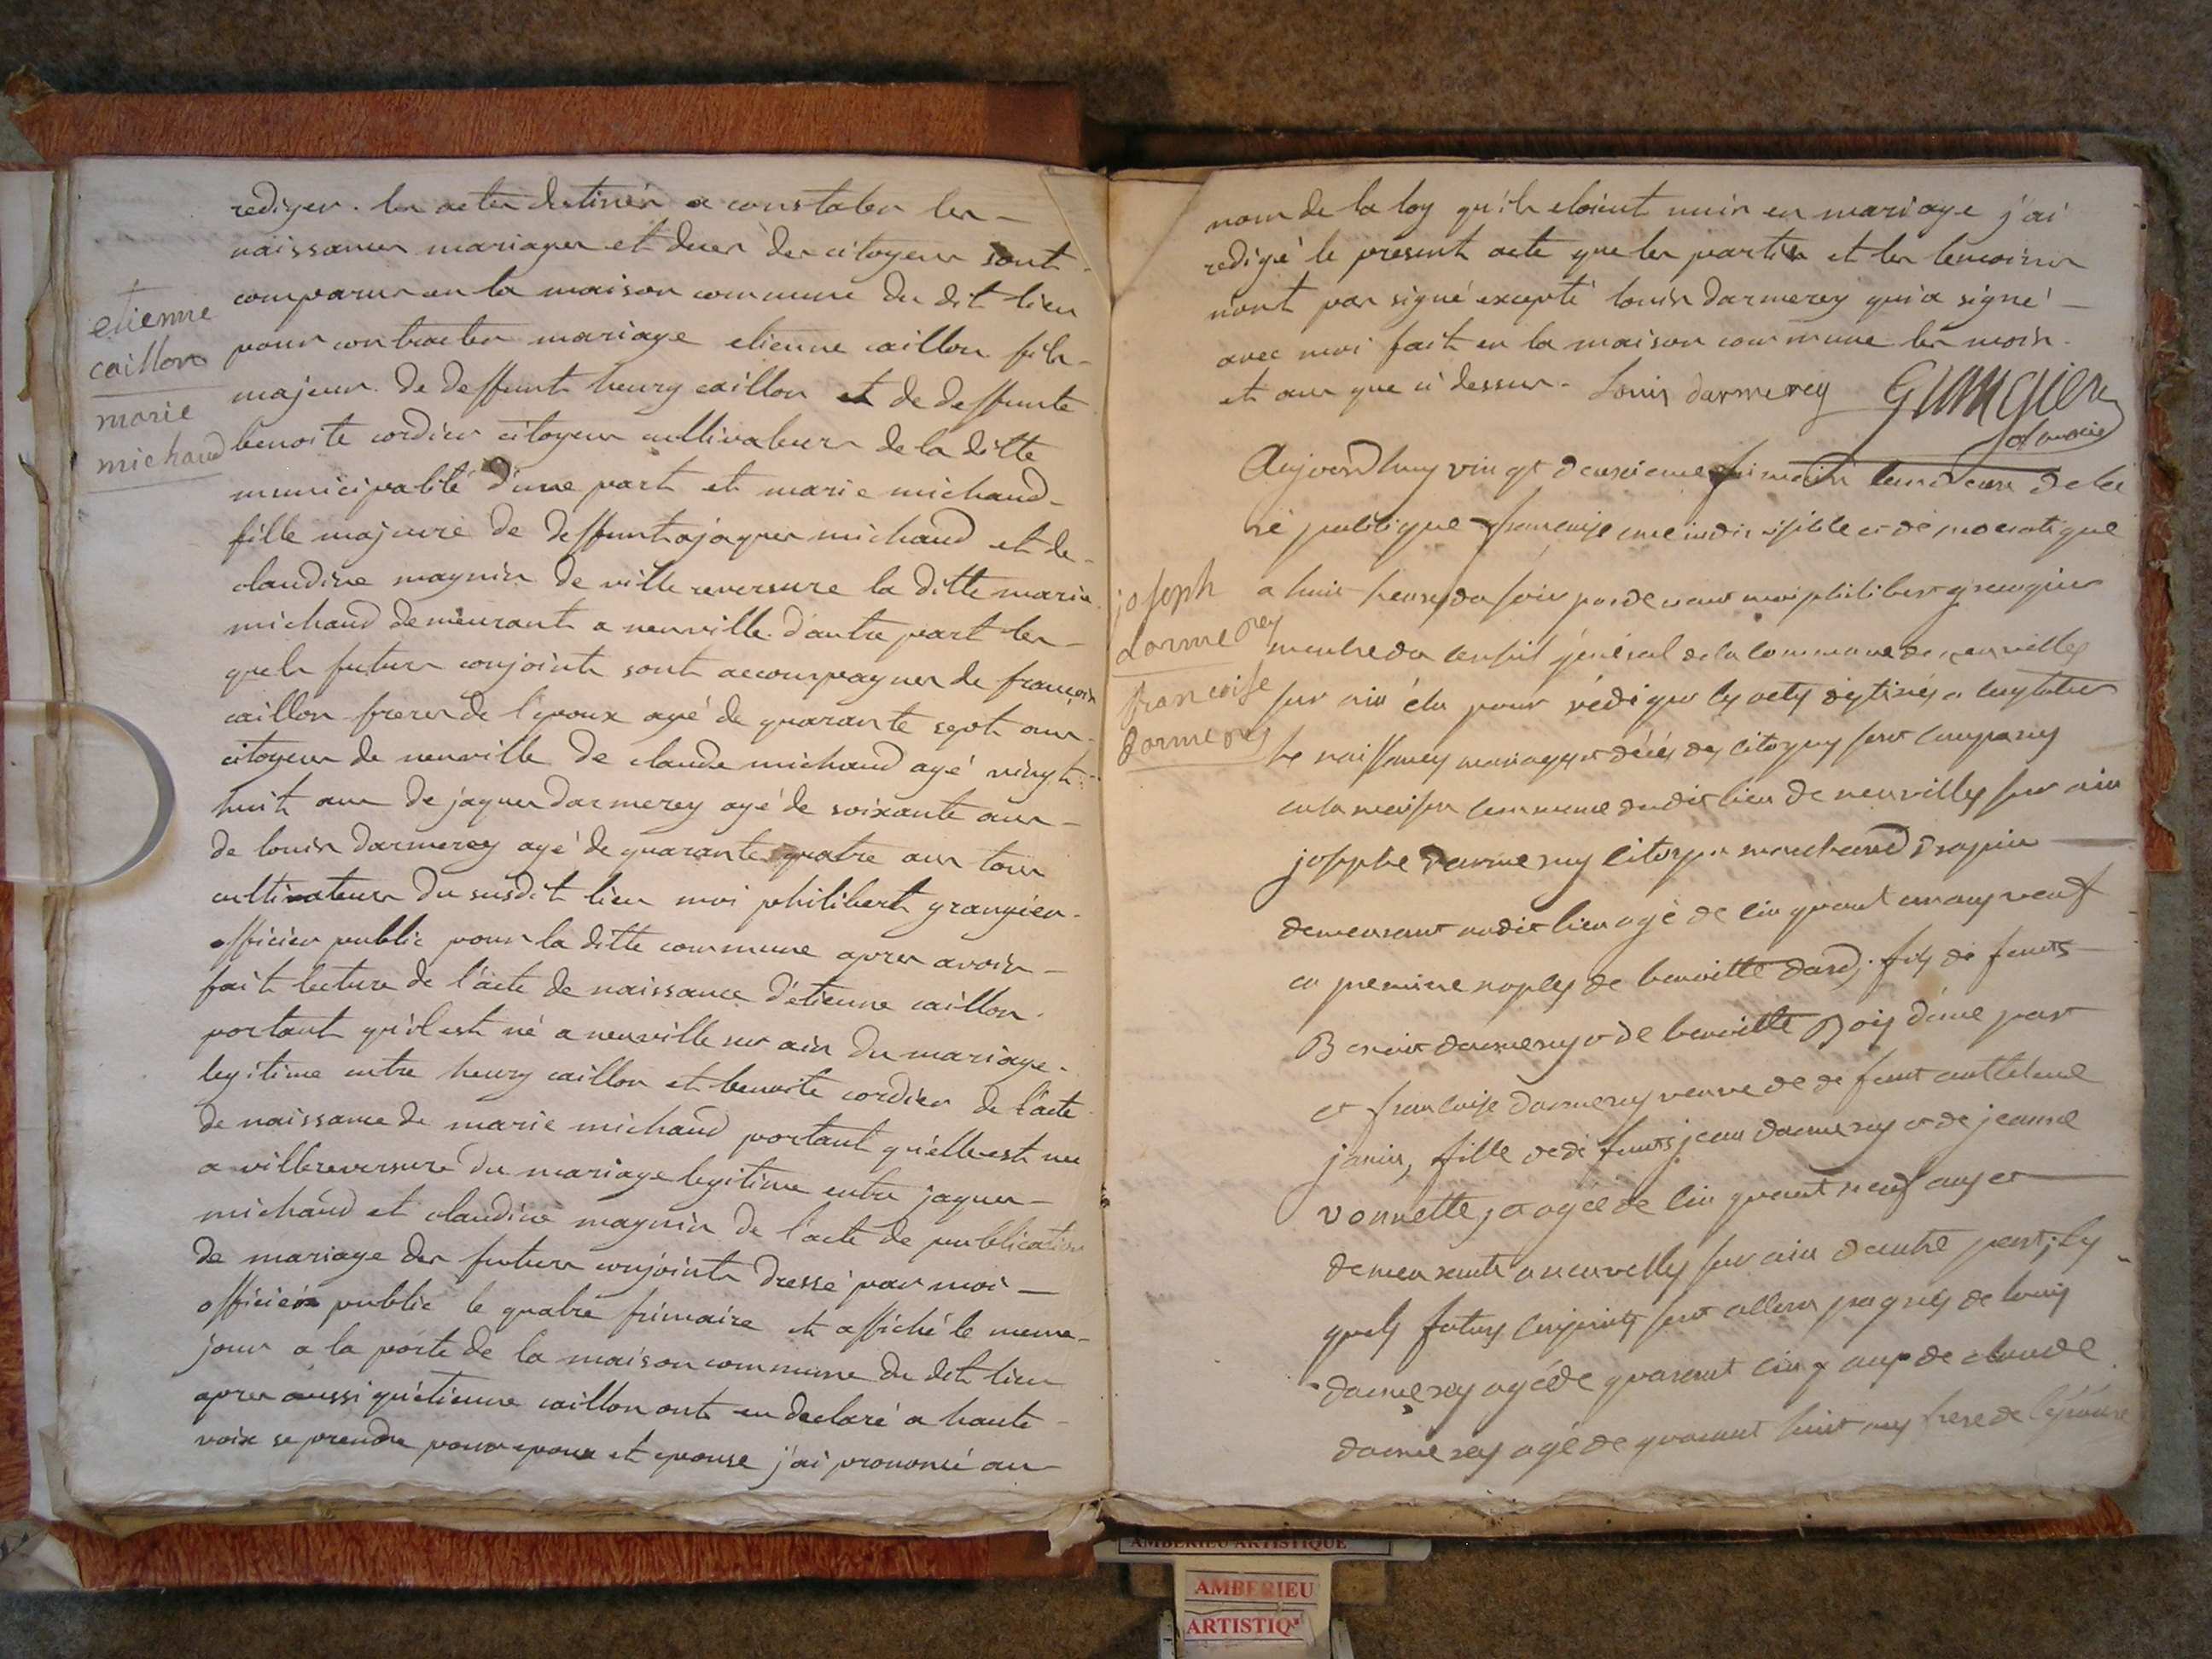 rediger les actes destinés a constater les
naissances mariages et deces des citoyens sont
comparus en la maison commune du dit lieu
pour contracter mariage etienne caillon fils
majeur de deffunt henry caillon et de deffunte
benoite cordier citoyens cultivateurs de la ditte
municipalité d'une part et marie michaud
fille majeure de deffunt ajaques michaud et de
claudine magnin de ville reversure la ditte marie
michaud demeurant a neuville d'autre part les
quels futurs conjoints sont accompagnes de françois
caillon freres de l'epoux agé de quarante sept ans
citoyens de neuville de claude michaud agé vingt
huit ans de jaques darmerey agé de soixante ans
de louis darmerey agé de quarante quatre ans tous
cultivateurs du susdit lieu moi philibert grangier
officier public pour la ditte commune apres avoir
fait lecture de l'acte de naissance d'etienne caillon
portant qu'il est né a neuville sur ain du mariage
legitime entre henry caillon et benoite cordier de l'acte
de naissance de marie michaud portant qu'elle est nee
a villereversure du mariage legitime entre jaques
michaud et claudine magnin de l'acte de publication
de mariage des futurs conjoints dressé par moi
officier public le quatre frimaire et affiché le meme
jour a la porte de la maison commune du dit lieu
apres aussi qu'etienne caillon ont eu declaré a haute
voix se prendre pour epoux et epouse j'ai prononcé au
etienne
caillon
marie
michaud
nom de la loy qu'ils etoient unis en mariage j'ai
redigé le present acte que les parties et les temoins
n'ont pas signé excepté louis darmerey qui a signé
avec moi fait en la maison commune les mois
et ans que ci dessus. Louis darmerey Grangier
Aujourdhuy vingt deuxieme frimaire lan deux de la
république francaise une indivisible et démocratique
a huit heures du soir pardevant moi philibert grangier
membre du conseil général de la commune de neuville
sur ain élu pour rédiger les actes destinés a constater
les naissances mariages et décés des citoyens sont comparus
en la maison commune dudit lieu de neuville sur ain
josephe darmerey citoyen marchand drapier
demeurant audit lieu agé de cinquante un ans veuf
en premiere noples de benoitte dard, fils de feuts
Benoit darmerey et de benoitte Bois d'une part
et francoise darmerey veuve de défunt anthelme
janin, fille de défunts jean darmerey et de jeanne
vonnette, et agée de cinquante neuf ans et
demeurante a neuville sur ain dautre part; les
quels futurs conjoints sont accompagnés de louis
darmerey agé de quarente cinq ans de claude
darmerey agé de quarante huit ans frere de l'épouse
joseph
darmerey
francoise
darmerey
AMBERIEU ARTISTIQUE
AMBERIEU
ARTISTIQ